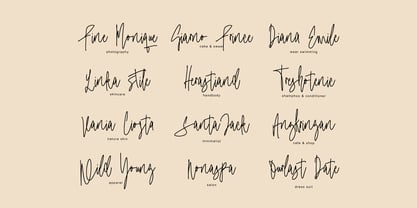 Fine Monique
photography
Siamo Prince
cake & sweet
Diana Emile
wear swimming
Linka Stile
skincare
Herastiand
handbody
Tresbotenie
shampoo & conditioner
Vania Ciosta
nature skin
SantaJack
minimarket
Angkringan
cafe & shop
Wild Young
apparel
Nonaspa
salon
Ourlast Date
dress suit